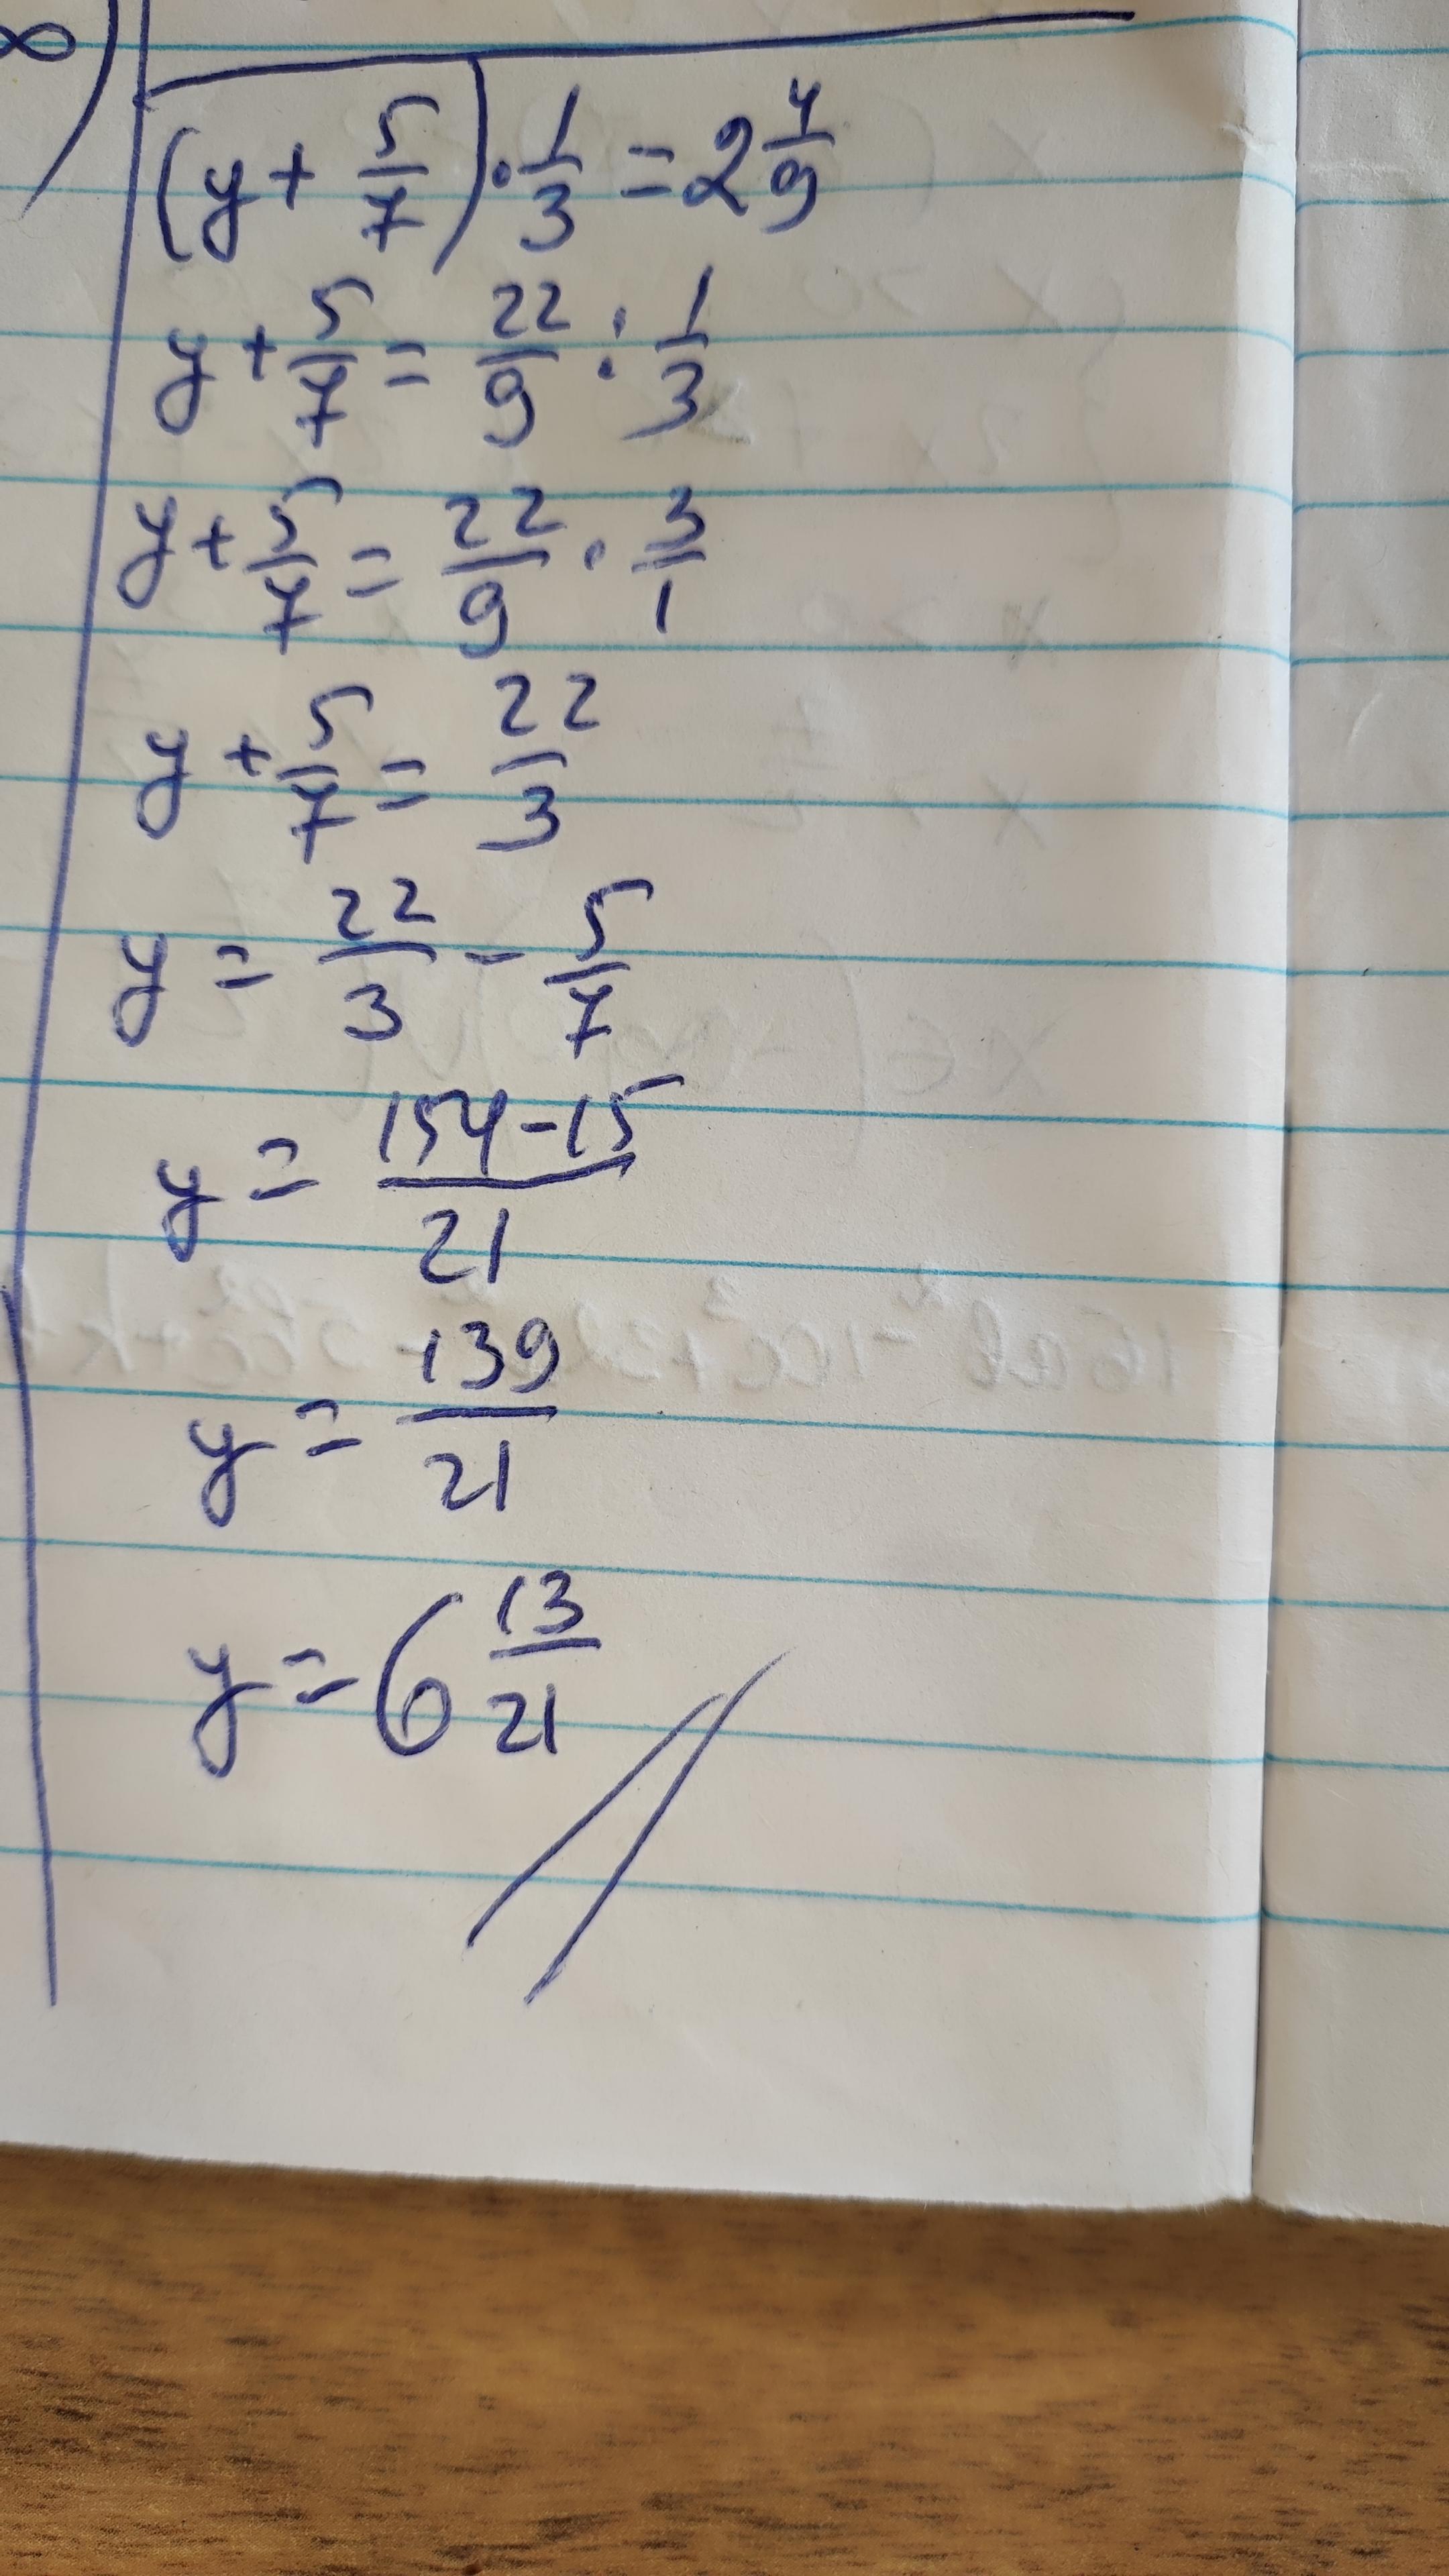 ∞)
(y + 5/7) · 1/3 = 2 4/9
y + 5/7 = 22/9 : 1/3
y + 5/7 = 22/9 · 3/1
y + 5/7 = 22/3
y = 22/3 - 5/7
y = 154-15/21
y = 139/21
y = 6 13/21